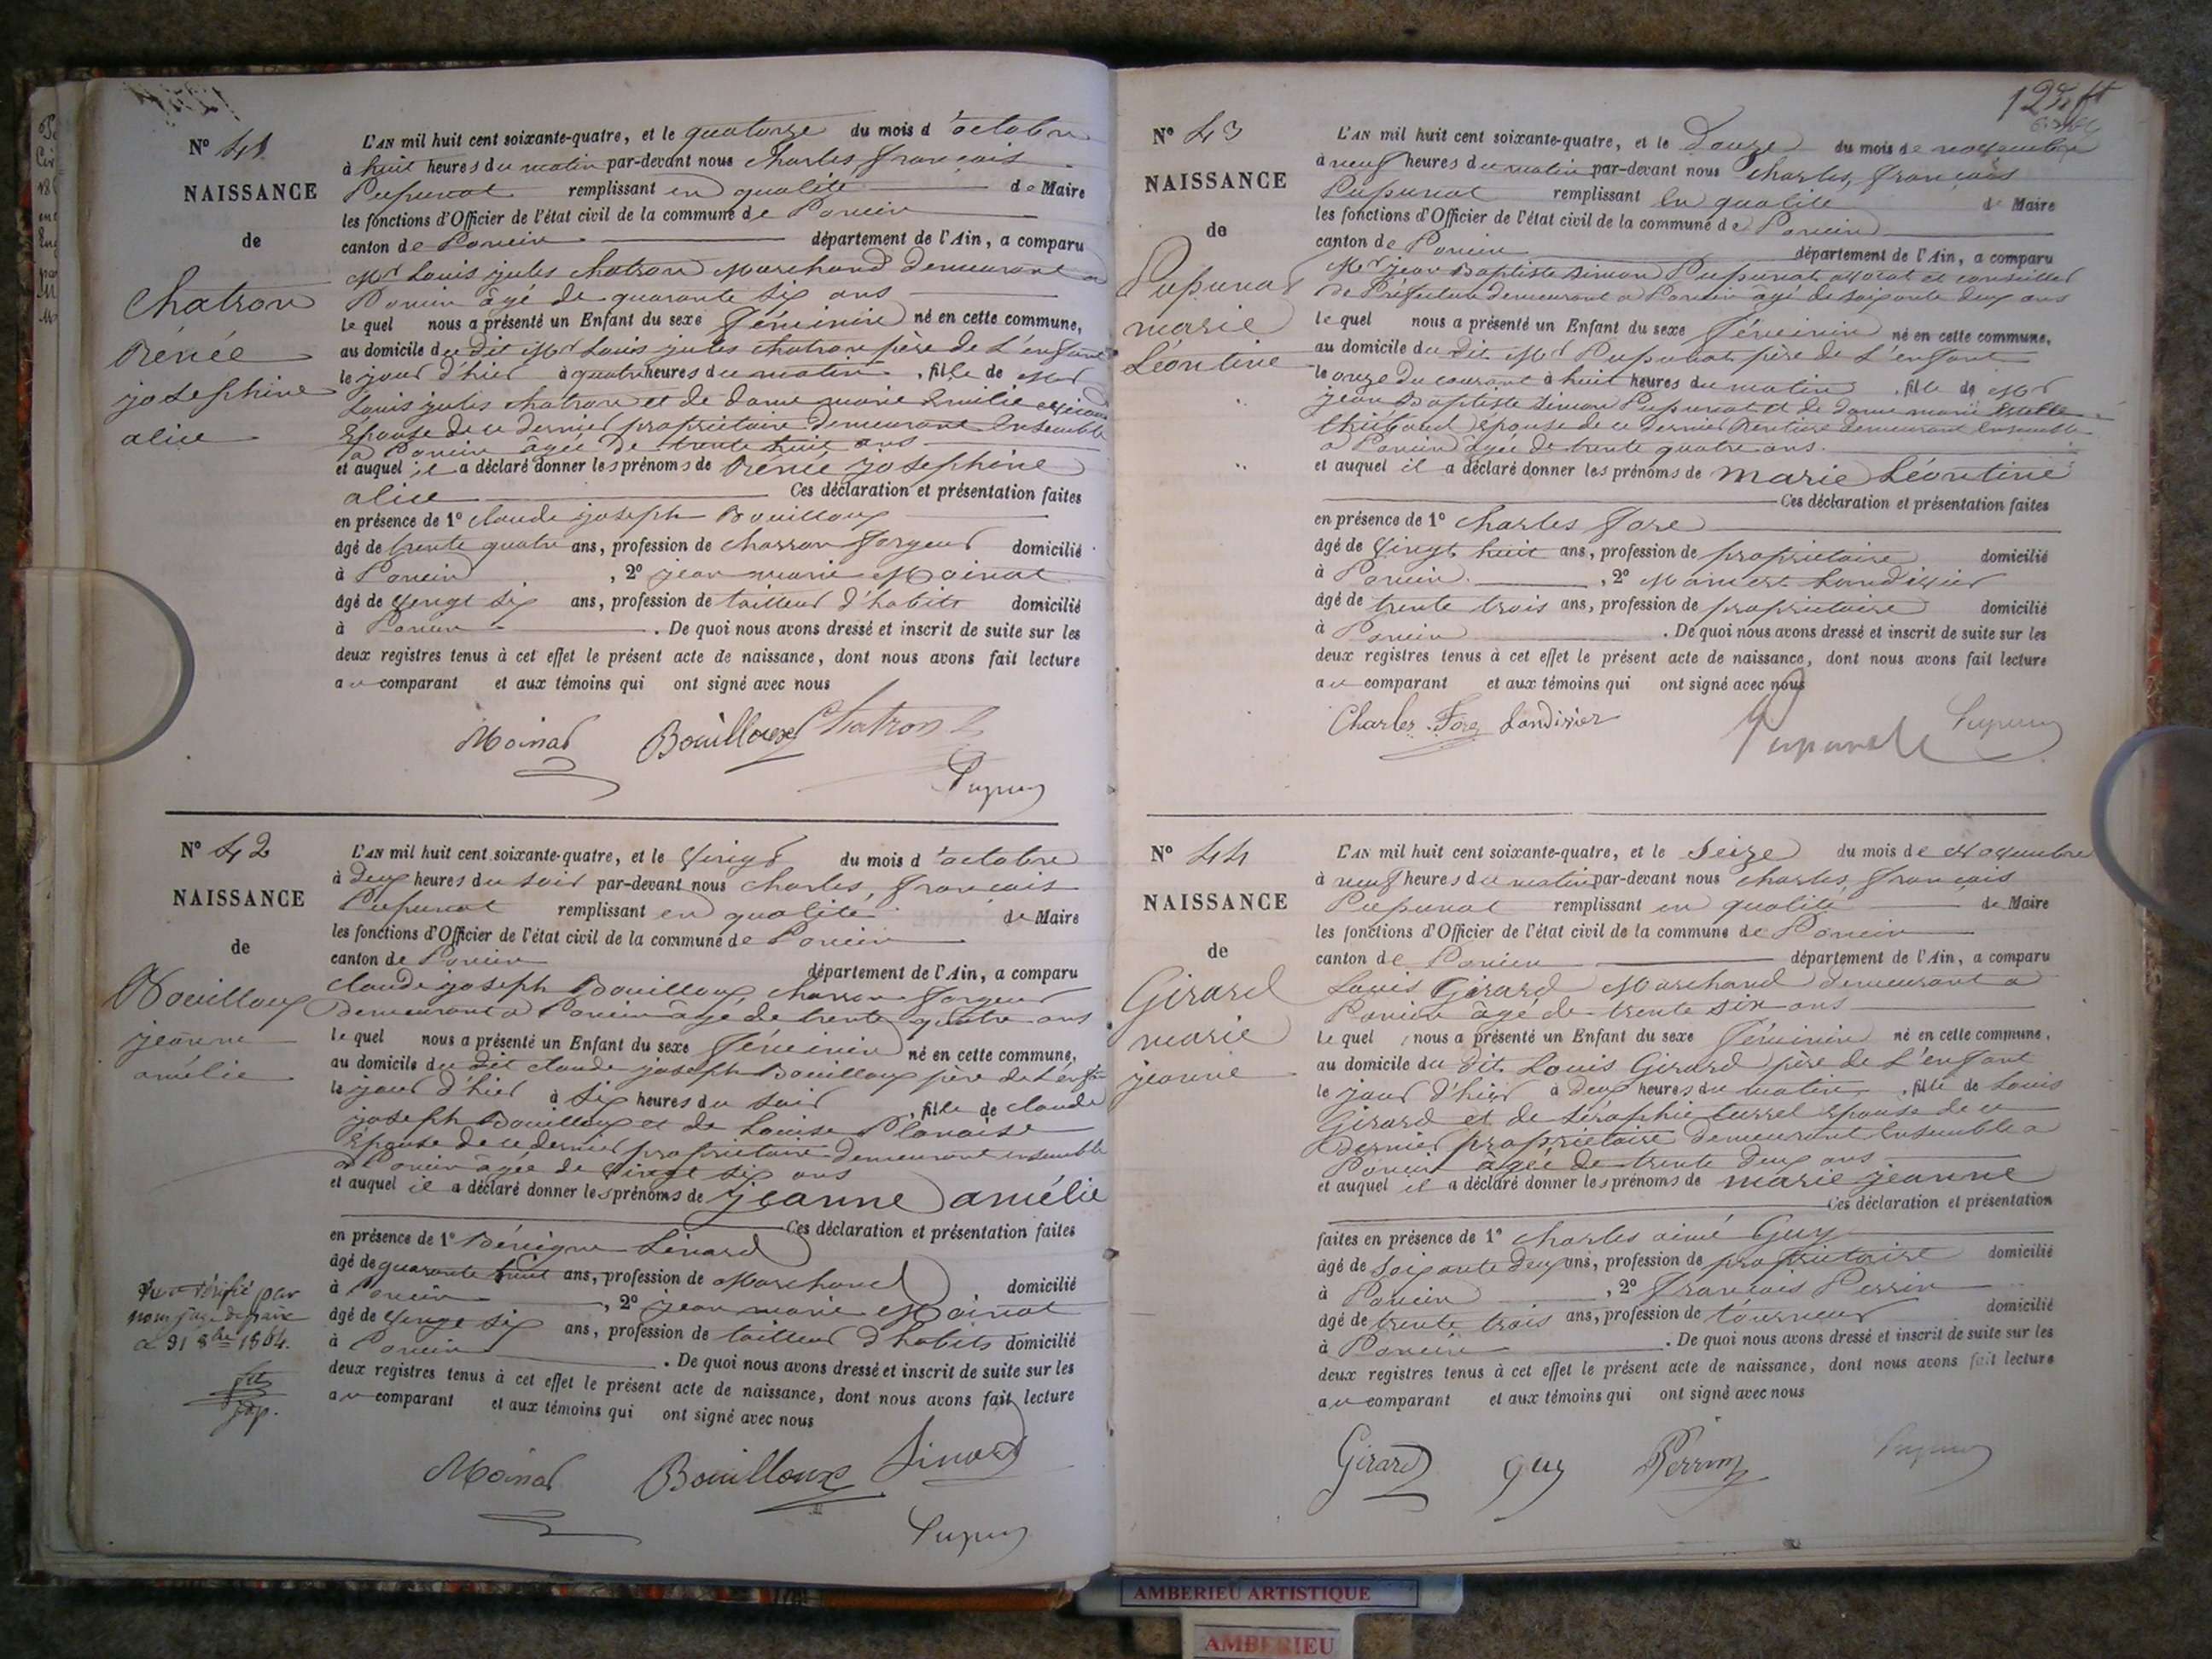 N° 41
NAISSANCE
de
Chatron
Rénée
josephine
alice
L'AN mil huit cent soixante-quatre, et le quatorze du mois d'octobre
à huit heures du matin par-devant nous Charles, françois
Pupunat remplissant en qualité de Maire
les fonctions d'Officier de l'état civil de la commune de Poncin
canton de Poncin département de l'Ain, a comparu
Mr Louis jules chatron Marchand demeurant a
Poncin âgé de quarante six ans
lequel nous a présenté un Enfant du sexe féminin né en cette commune,
au domicile du dit Mr Louis jules chatron père de l'enfant
le jour d'hier à quatre heures du matin, fille de Mr
Louis jules chatron et de dame marie Emilie
Epouse de ce dernier propriétaire demeurant Ensemble
a Poncin âgée de trente huit ans
et auquel il a déclaré donner les prénoms de Rénée josephine
alice Ces déclaration et présentation faites
en présence de 1° claude joseph Bouilloux
âgé de trente quatre ans, profession de charron forgeur domicilié
à Poncin, 2° jean marie Moinat
âgé de vingt six ans, profession de tailleur d'habits domicilié
à Poncin. De quoi nous avons dressé et inscrit de suite sur les
deux registres tenus à cet effet le présent acte de naissance, dont nous avons fait lecture
au comparant et aux témoins qui ont signé avec nous
Moinat Bouilloux Chatron
N° 42
NAISSANCE
de
Bouilloux
jeanne
amélie
L'AN mil huit cent soixante-quatre, et le vingt du mois d'octobre
à deux heures du soir par-devant nous charles, françois
Pupunat remplissant en qualité de Maire
les fonctions d'Officier de l'état civil de la commune de Poncin
canton de Poncin département de l'Ain, a comparu
claude joseph Bouilloux charron forgeur
demeurant a Poncin âgé de trente quatre ans
lequel nous a présenté un Enfant du sexe féminin né en cette commune,
au domicile du dit claude joseph Bouilloux père de l'enfant
le jour d'hier à six heures du soir, fille de claude
joseph Bouilloux et de Louise Plavaise
Epouse de ce dernier propriétaire demeurant ensemble
a Poncin âgée de vingt six ans
et auquel il a déclaré donner les prénoms de jeanne amélie
Ces déclaration et présentation faites
en présence de 1° Bénigne Linard
âgé de quarante huit ans, profession de Marchand domicilié
à Poncin, 2° jean marie Moinat
âgé de vingt six ans, profession de tailleur d'habits domicilié
à Poncin. De quoi nous avons dressé et inscrit de suite sur les
deux registres tenus à cet effet le présent acte de naissance, dont nous avons fait lecture
au comparant et aux témoins qui ont signé avec nous
Vu et vérifié par
nous juge de paix
ce 31 8bre 1864.
Moinat Bouilloux Linard
N° 43
NAISSANCE
de
Pupunat
marie
Léontine
L'AN mil huit cent soixante-quatre, et le Douze du mois de novembre
à neuf heures du matin par-devant nous Charles, françois
Pupunat remplissant en qualité de Maire
les fonctions d'Officier de l'état civil de la commune de Poncin
canton de Poncin département de l'Ain, a comparu
Mr jean Baptiste simon Pupunat avocat et conseiller
de Préfecture demeurant a Poncin âgé de soixante deux ans
lequel nous a présenté un Enfant du sexe féminin né en cette commune,
au domicile du dit Mr Pupunat père de l'enfant
le onze du courant à huit heures du matin, fille de Mr
jean Baptiste simon Pupunat et de dame marie
épouse de ce dernier Rentière demeurant Ensemble
a Poncin âgée de trente quatre ans
et auquel il a déclaré donner les prénoms de marie Léontine
Ces déclaration et présentation faites
en présence de 1° Charles Fore
âgé de vingt huit ans, profession de propriétaire domicilié
à Poncin, 2° Mamert Landisier
âgé de trente trois ans, profession de propriétaire domicilié
à Poncin. De quoi nous avons dressé et inscrit de suite sur les
deux registres tenus à cet effet le présent acte de naissance, dont nous avons fait lecture
au comparant et aux témoins qui ont signé avec nous
Charles Fore Landisier Pupunat
N° 44
NAISSANCE
de
Girard
marie
jeanne
L'AN mil huit cent soixante-quatre, et le Seize du mois de Novembre
à neuf heures du matin par-devant nous charles, françois
Pupunat remplissant en qualité de Maire
les fonctions d'Officier de l'état civil de la commune de Poncin
canton de Poncin département de l'Ain, a comparu
Louis Girard Marchand demeurant a
Poncin âgé de trente six ans
lequel nous a présenté un Enfant du sexe féminin né en cette commune,
au domicile du dit Louis Girard père de l'enfant
le jour d'hier à deux heures du matin, fille de Louis
Girard et de séraphie Curzel Epouse de ce
Dernier propriétaire demeurant Ensemble a
Poncin âgée de trente deux ans
et auquel il a déclaré donner les prénoms de marie jeanne
Ces déclaration et présentation
faites en présence de 1° charles aimé Guy
âgé de soixante deux ans, profession de propriétaire domicilié
à Poncin, 2° françois Perrin
âgé de trente trois ans, profession de tourneur domicilié
à Poncin. De quoi nous avons dressé et inscrit de suite sur les
deux registres tenus à cet effet le présent acte de naissance, dont nous avons fait lecture
au comparant et aux témoins qui ont signé avec nous
Girard Guy Perrin
AMBERIEU ARTISTIQUE
AMBERIEU